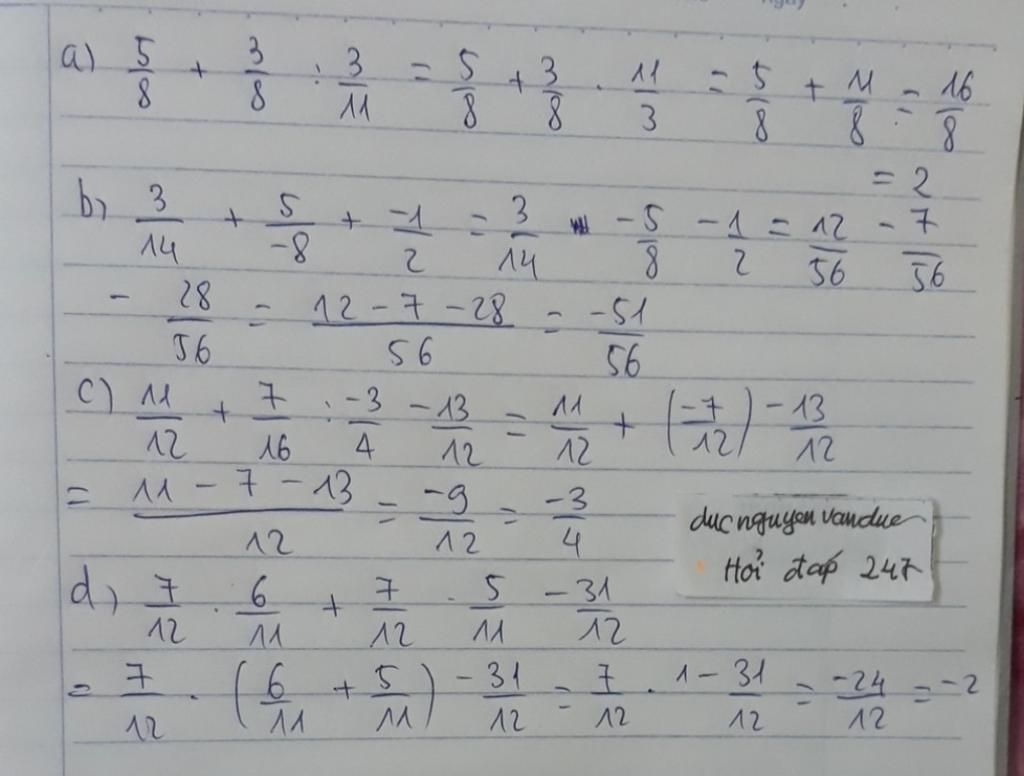 a) 5/8 + 3/8 : 3/11 = 5/8 + 3/8 . 11/3 = 5/8 + 11/8 = 16/8
= 2
b) 3/14 + 5/-8 + -1/2 = 3/14 -5/8 - 1/2 = 12/56 - 7/56
- 28/56 = 12 - 7 - 28/56 = -51/56
c) 11/12 + 7/16 : -3/4 - 13/12 = 11/12 + (-7/12) - 13/12
= 11 - 7 - 13/12 = -9/12 = -3/4
ducnguyenvanduc
Hỏi đáp 247
d) 7/12 . 6/11 + 7/12 . 5/11 - 31/12
= 7/12 . (6/11 + 5/11) - 31/12 = 7/12 . 1 - 31/12 = -24/12 = -2